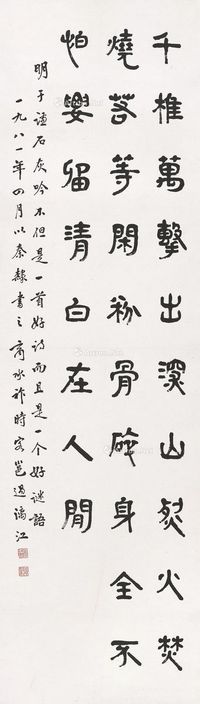 千椎萬擊出深山烈火焚
燒若等閑粉骨碎身全不
怕要留清白在人間
明于谦石灰吟不但是一首好诗而且是一个好谜语
一九八一年四月以秦隸書之商承祚時客邕過漓江